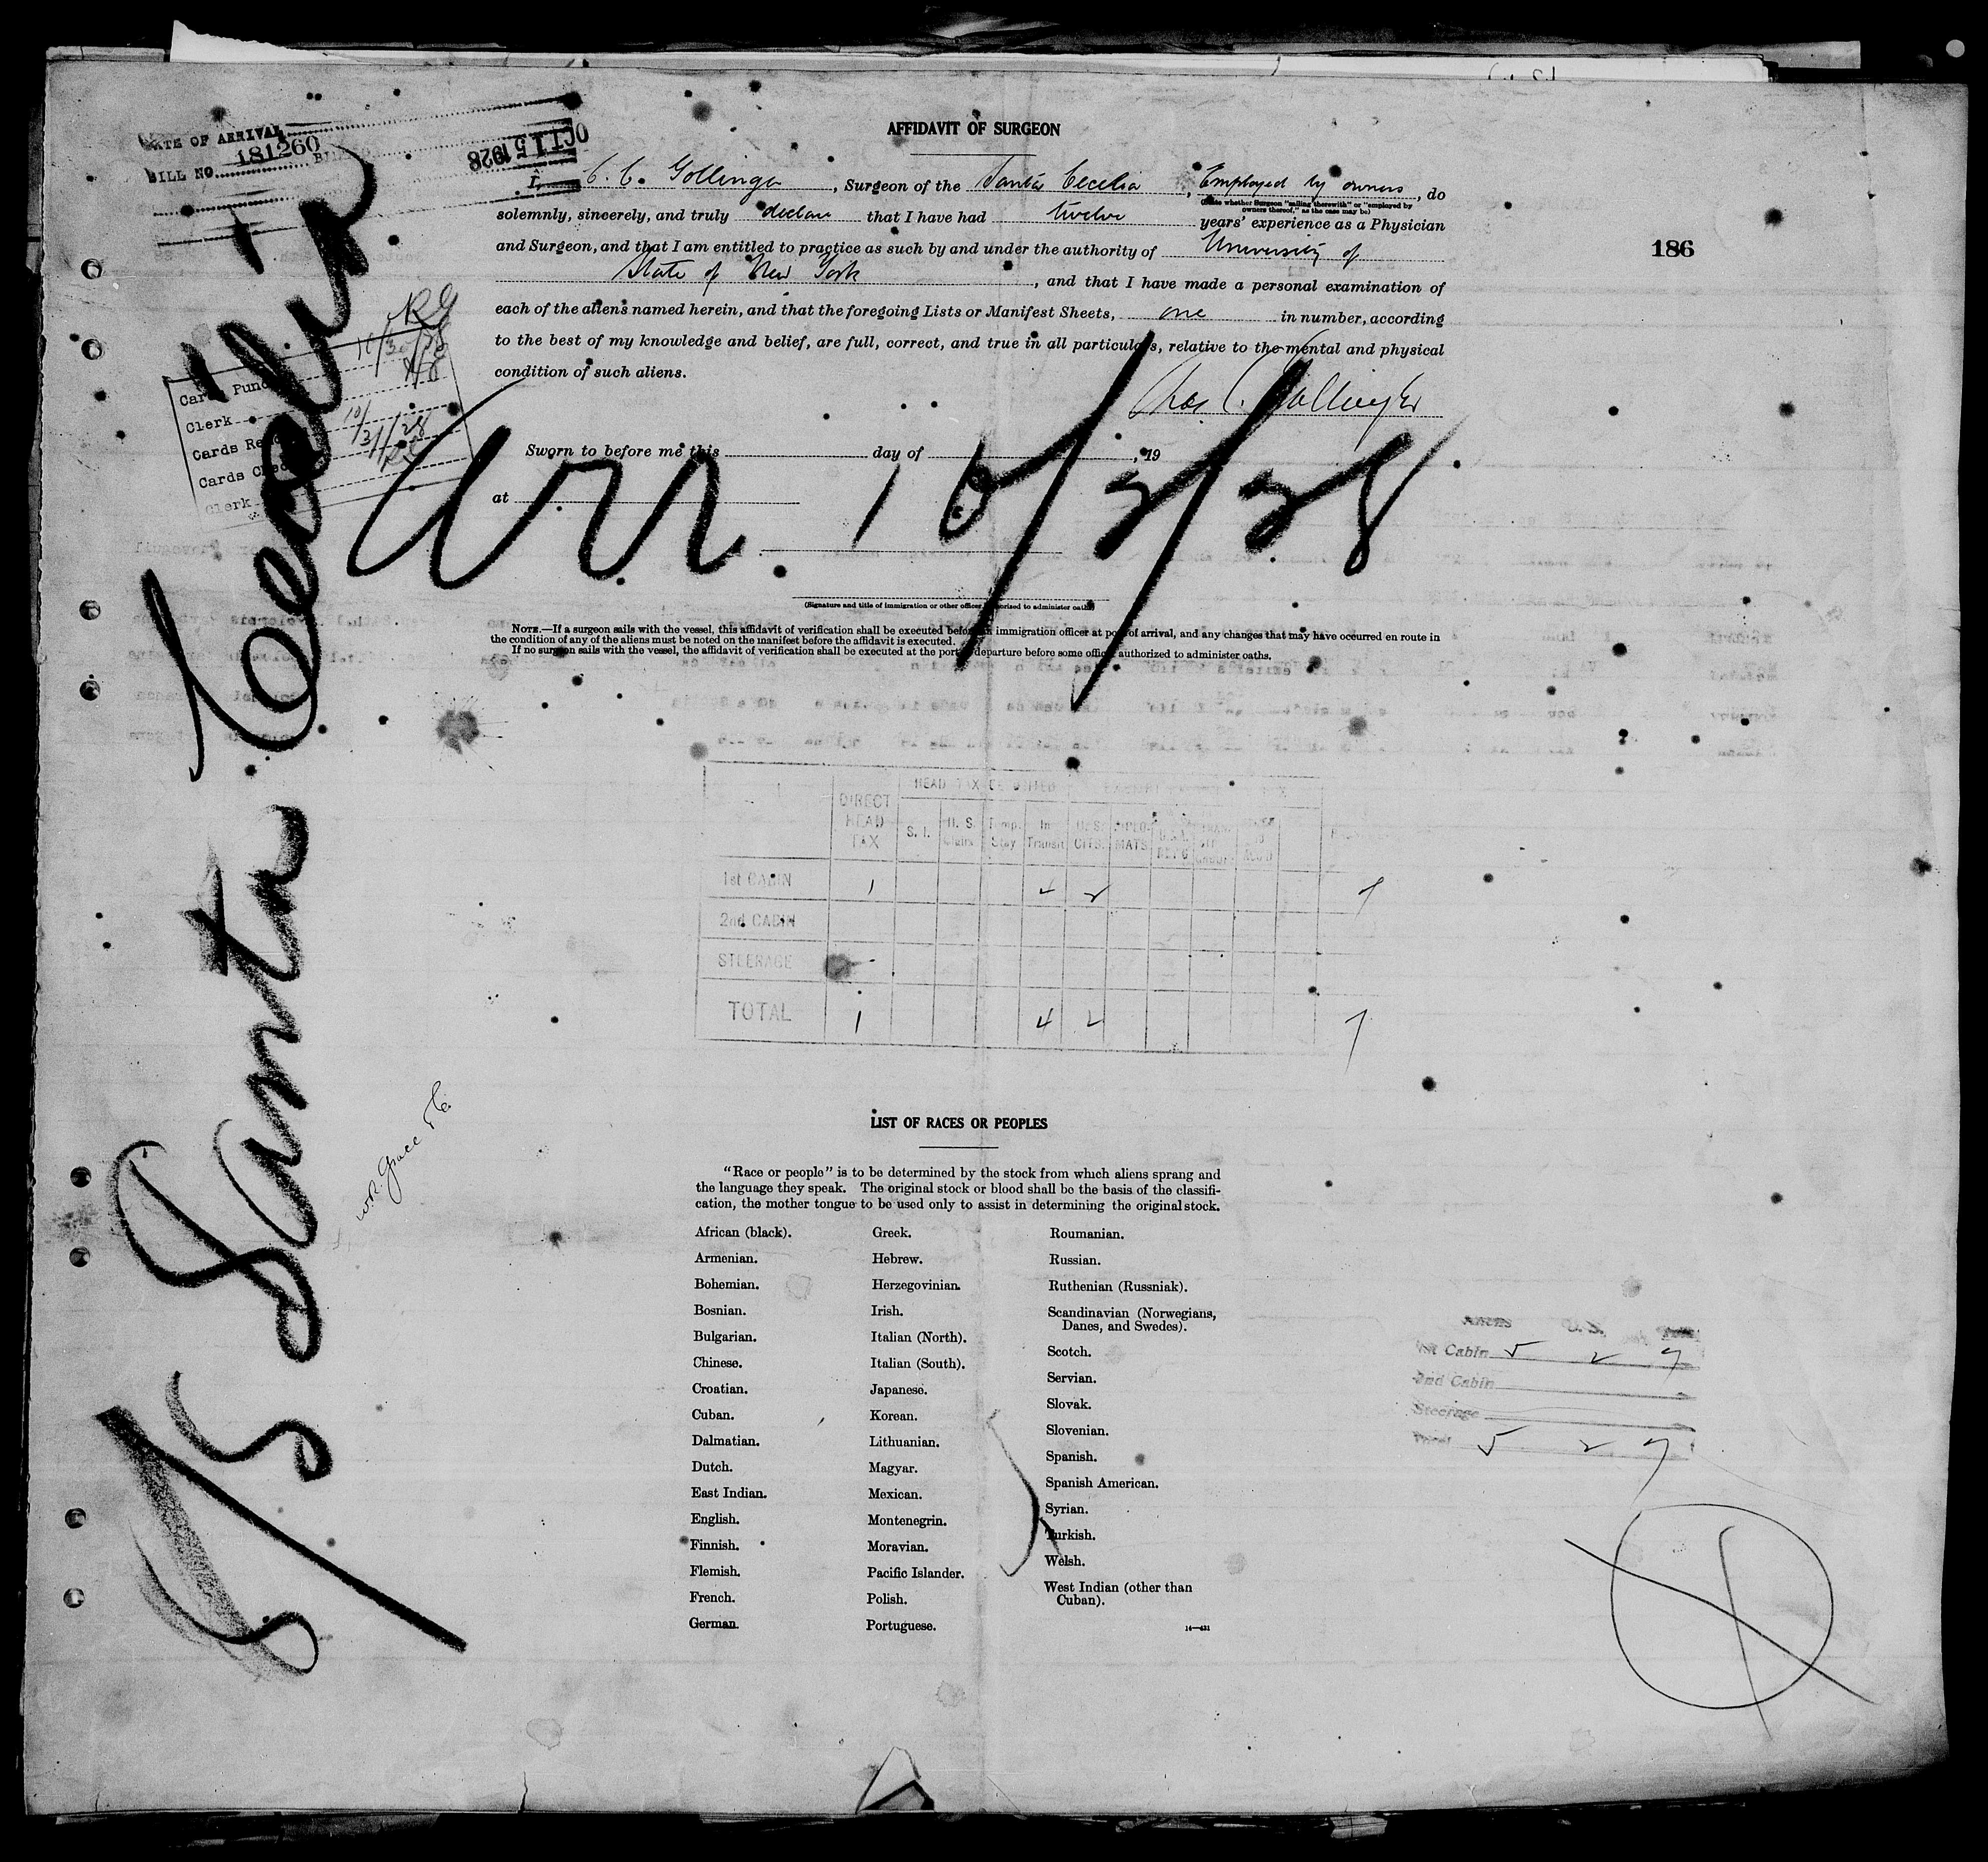 DATE OF ARRIVAL
181260
BILL NO.
OCT 15 1928
AFFIDAVIT OF SURGEON
I, C. C. Gollinger, Surgeon of the Santa Cecelia, Employed by owners, do
(State whether Surgeon "sailing therewith" or "employed by owners thereof," as the case may be)
solemnly, sincerely, and truly declare that I have had twelve years' experience as a Physician
and Surgeon, and that I am entitled to practice as such by and under the authority of University of
State of New York, and that I have made a personal examination of
186
each of the aliens named herein, and that the foregoing Lists or Manifest Sheets, one in number, according
to the best of my knowledge and belief, are full, correct, and true in all particulars, relative to the mental and physical
condition of such aliens.
Chas C. Gollinger
Clerk
10/31/28
Clerk
Sworn to before me this day of , 19
at
Arr. 10/2/28
(Signature and title of immigration or other officer authorized to administer oaths)
NOTE.—If a surgeon sails with the vessel, this affidavit of verification shall be executed before an immigration officer at port of arrival, and any changes that may have occurred en route in
the condition of any of the aliens must be noted on the manifest before the affidavit is executed.
If no surgeon sails with the vessel, the affidavit of verification shall be executed at the port of departure before some officer authorized to administer oaths.
S/S Santa Cecelia
W.R. Grace & Co.
DIRECT HEAD TAX
S. I.
U. S.
Temp. Stay
In Transit
U. S. CITS.
DIPLOMATS
1st CABIN 1 4 2 7
2nd CABIN
STEERAGE
TOTAL 1 4 2 7
LIST OF RACES OR PEOPLES
"Race or people" is to be determined by the stock from which aliens sprang and
the language they speak. The original stock or blood shall be the basis of the classifi-
cation, the mother tongue to be used only to assist in determining the original stock.
African (black).
Armenian.
Bohemian.
Bosnian.
Bulgarian.
Chinese.
Croatian.
Cuban.
Dalmatian.
Dutch.
East Indian.
English.
Finnish.
Flemish.
French.
German.
Greek.
Hebrew.
Herzegovinian.
Irish.
Italian (North).
Italian (South).
Japanese.
Korean.
Lithuanian.
Magyar.
Mexican.
Montenegrin.
Moravian.
Pacific Islander.
Polish.
Portuguese.
Roumanian.
Russian.
Ruthenian (Russniak).
Scandinavian (Norwegians,
Danes, and Swedes).
Scotch.
Servian.
Slovak.
Slovenian.
Spanish.
Spanish American.
Syrian.
Turkish.
Welsh.
West Indian (other than
Cuban).
14—431
Aliens U. S. Total
1st Cabin 5 2 7
2nd Cabin
Steerage
Total 5 2 7